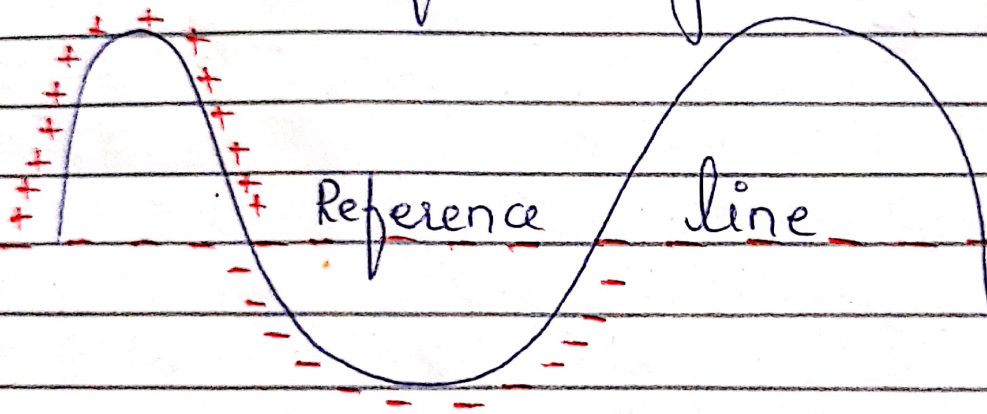 Reference line